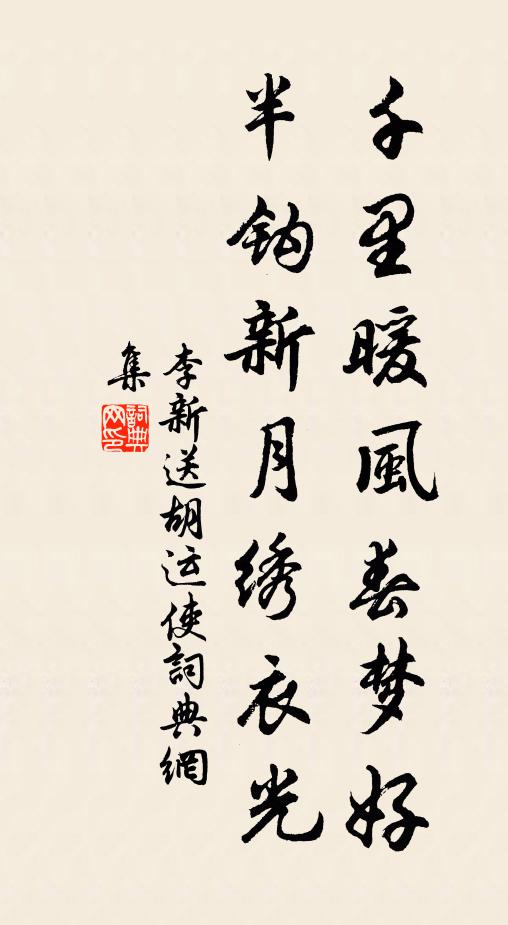 千里暖風春梦好
半鈎新月绣衣光
李新送胡运使詞典網
集
詞典
网印